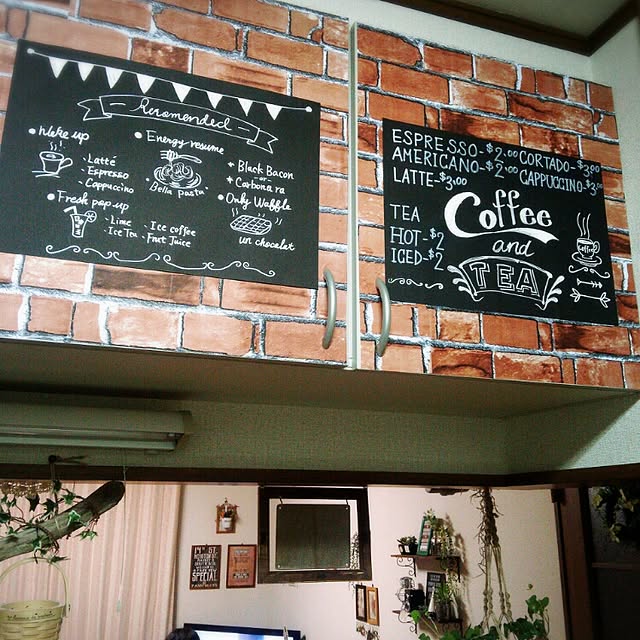 Recomended
Wake up
Latte
Espresso
Cappuccino
Fresh pop up
Lime
Ice Tea
Ice coffee
Fruit Juice
Energy resume
Bella pasta
Black Bacon
or
Carbonara
Only Wabble
un chocolat
ESPRESSO-$2.00
AMERICANO-$2.00
LATTE-$3.00
CORTADO-$3.00
CAPPUCCINO-$3.00
TEA
HOT-$2
ICED-$2
Coffee
and
TEA
coffee
14TH ST.
SPECIAL